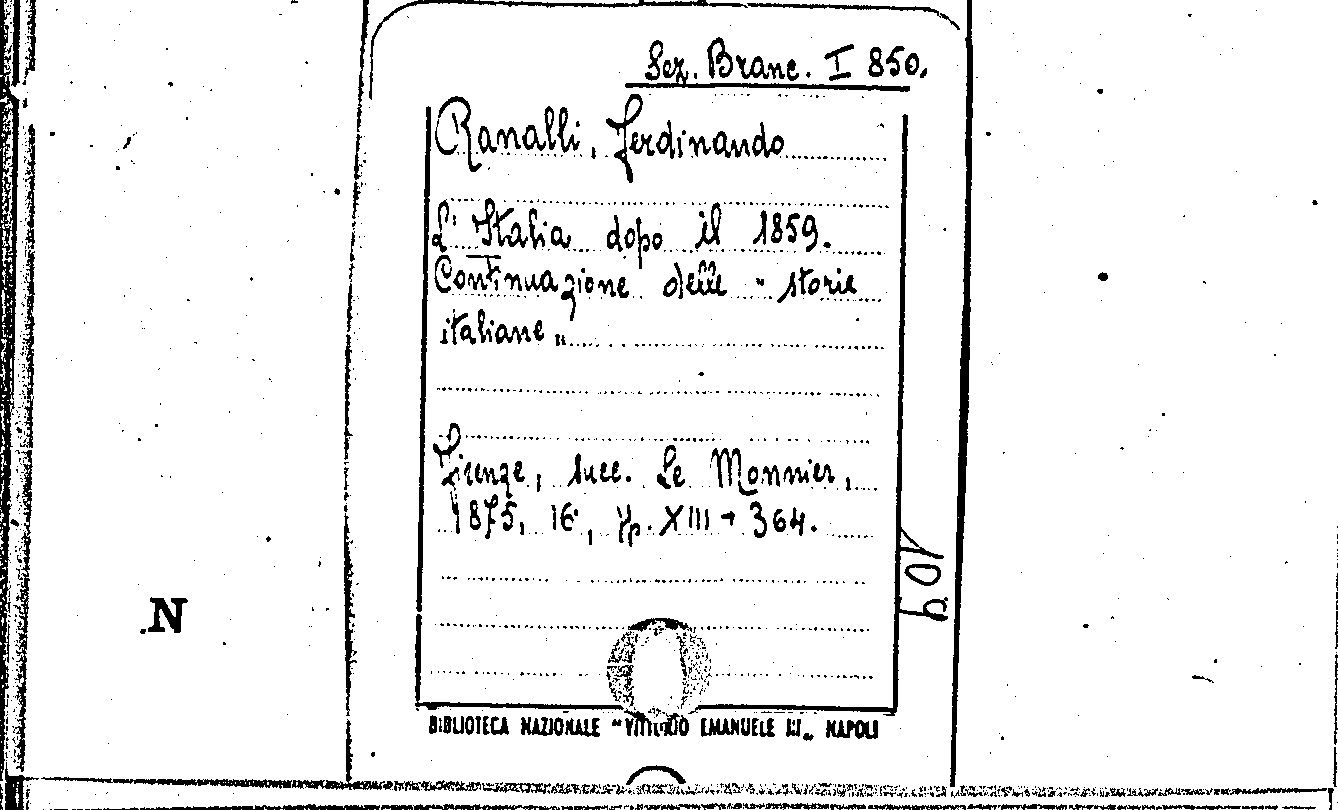 Sez. Branc. I 850.
Ranalli, Ferdinando
L'Italia dopo il 1859.
Continuazione delle " storie
italiane "
Firenze, succ. Le Monnier,
1875, 16°, pp. XIII + 364.
109
N
BIBLIOTECA NAZIONALE "VITTORIO EMANUELE III" NAPOLI